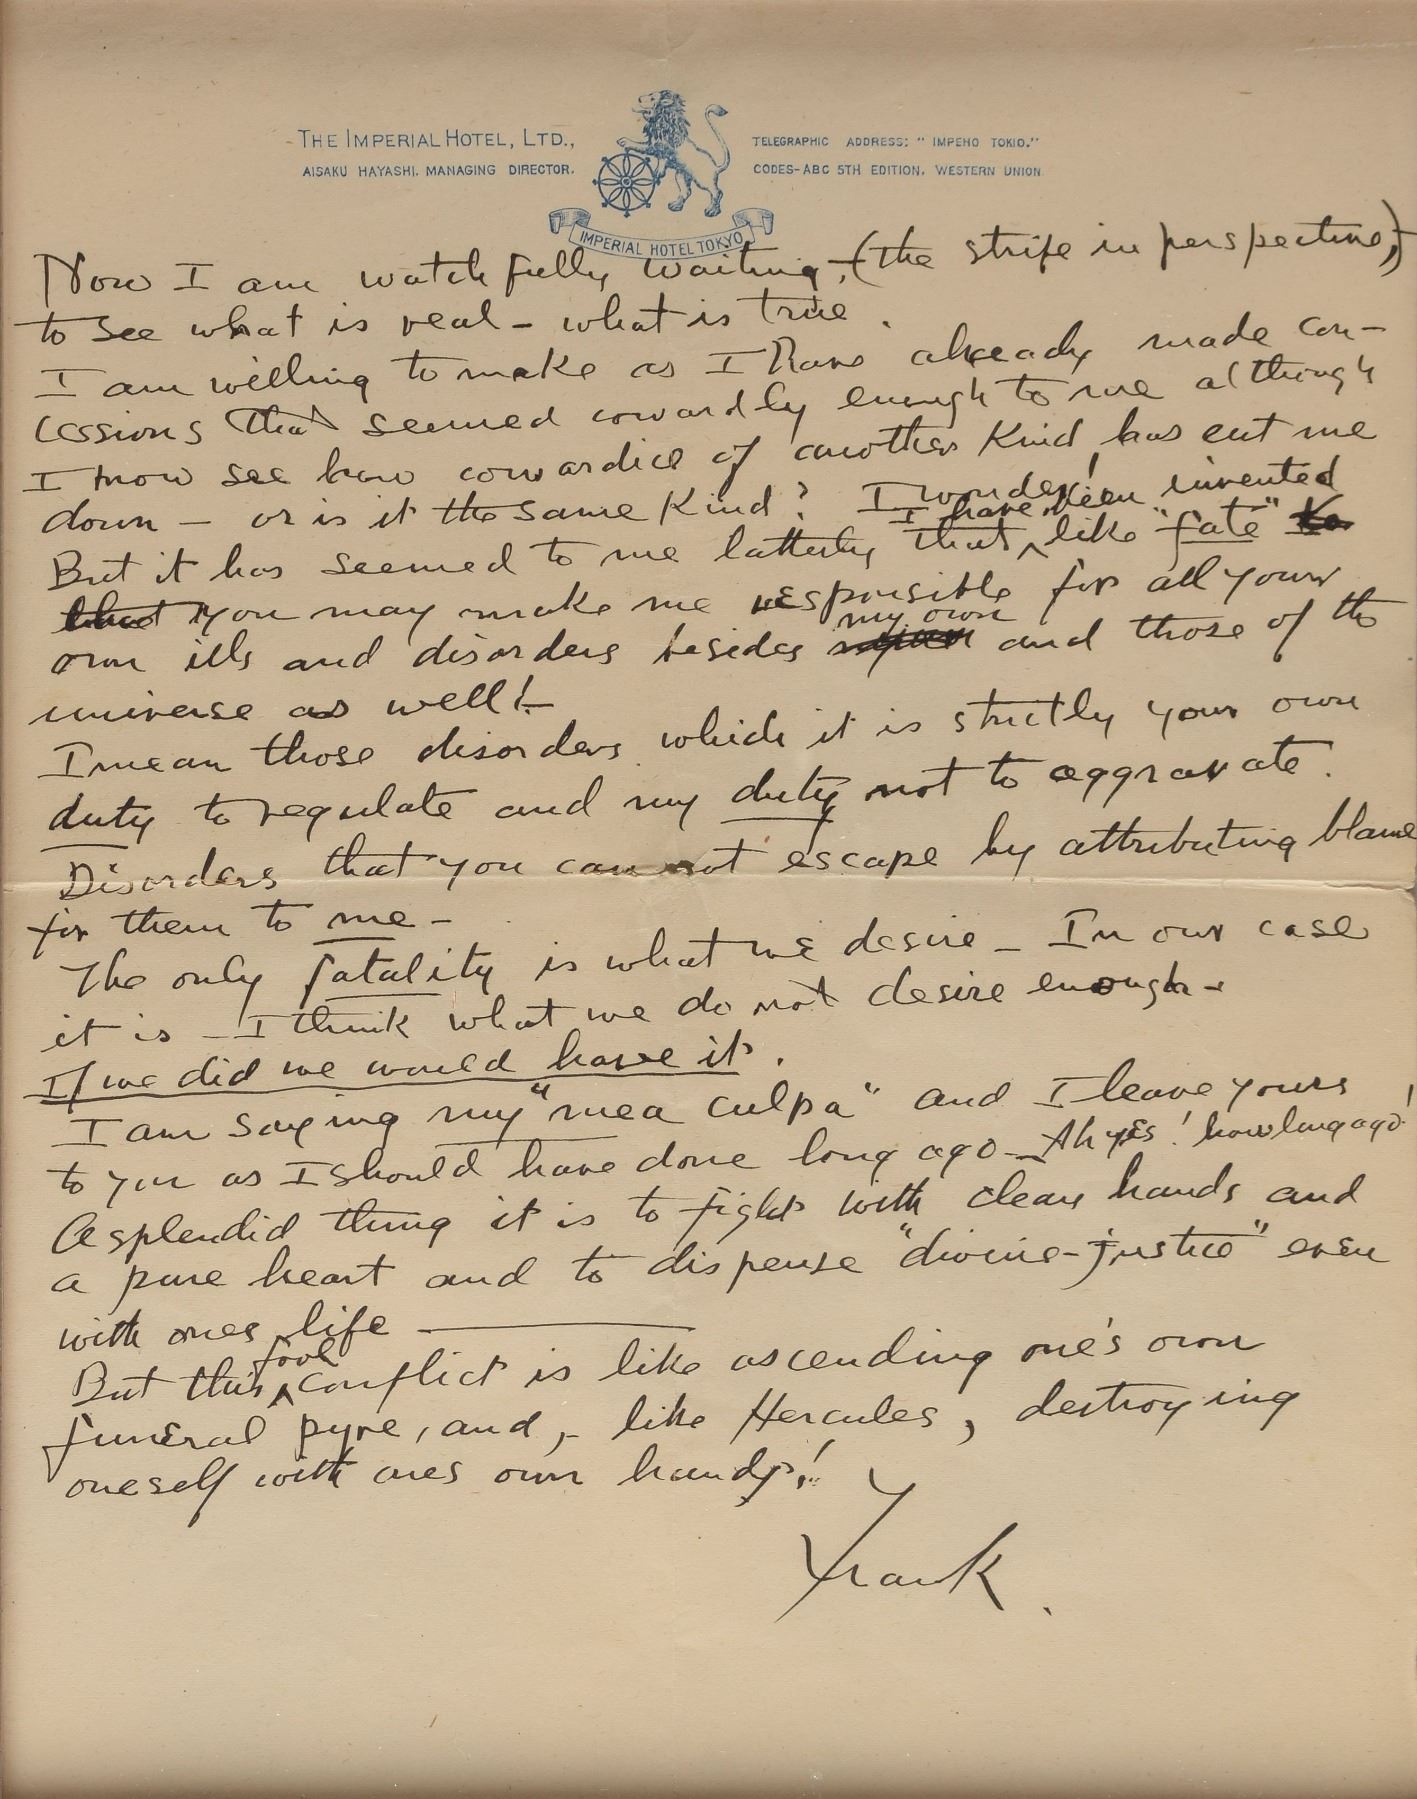 THE IMPERIAL HOTEL, LTD.,
AISAKU HAYASHI. MANAGING DIRECTOR.
TELEGRAPHIC ADDRESS: "IMPEHO TOKIO."
CODES-ABC 5TH EDITION. WESTERN UNION
IMPERIAL HOTEL TOKYO
Now I am watchfully waiting, (the strife in perspective,)
to see what is real - what is true.
I am willing to make as I have already made con-
cessions that seemed cowardly enough to me although
I now see how cowardice of another kind has cut me
down - or is it the same kind? I wonder!
But it has seemed to me latterly that I have been invented like "fate"
you may make me responsible for all your
own ills and disorders besides my own and those of the
universe as well! -
I mean those disorders which it is strictly your own
duty to regulate and my duty not to aggravate.
Disorders that you can not escape by attributing blame
for them to me -
The only fatality is what we desire - In our case
it is - I think what we do not desire enough -
If we did we would have it.
I am saying my "mea culpa" and I leave yours
to you as I should have done long ago - Ah yes! how long ago!
A splendid thing it is to fight with clean hands and
a pure heart and to dispense "divine-justice" even
with ones life
But this fool conflict is like ascending one's own
funeral pyre, and, - like Hercules, destroying
oneself with ones own hands!
Frank.